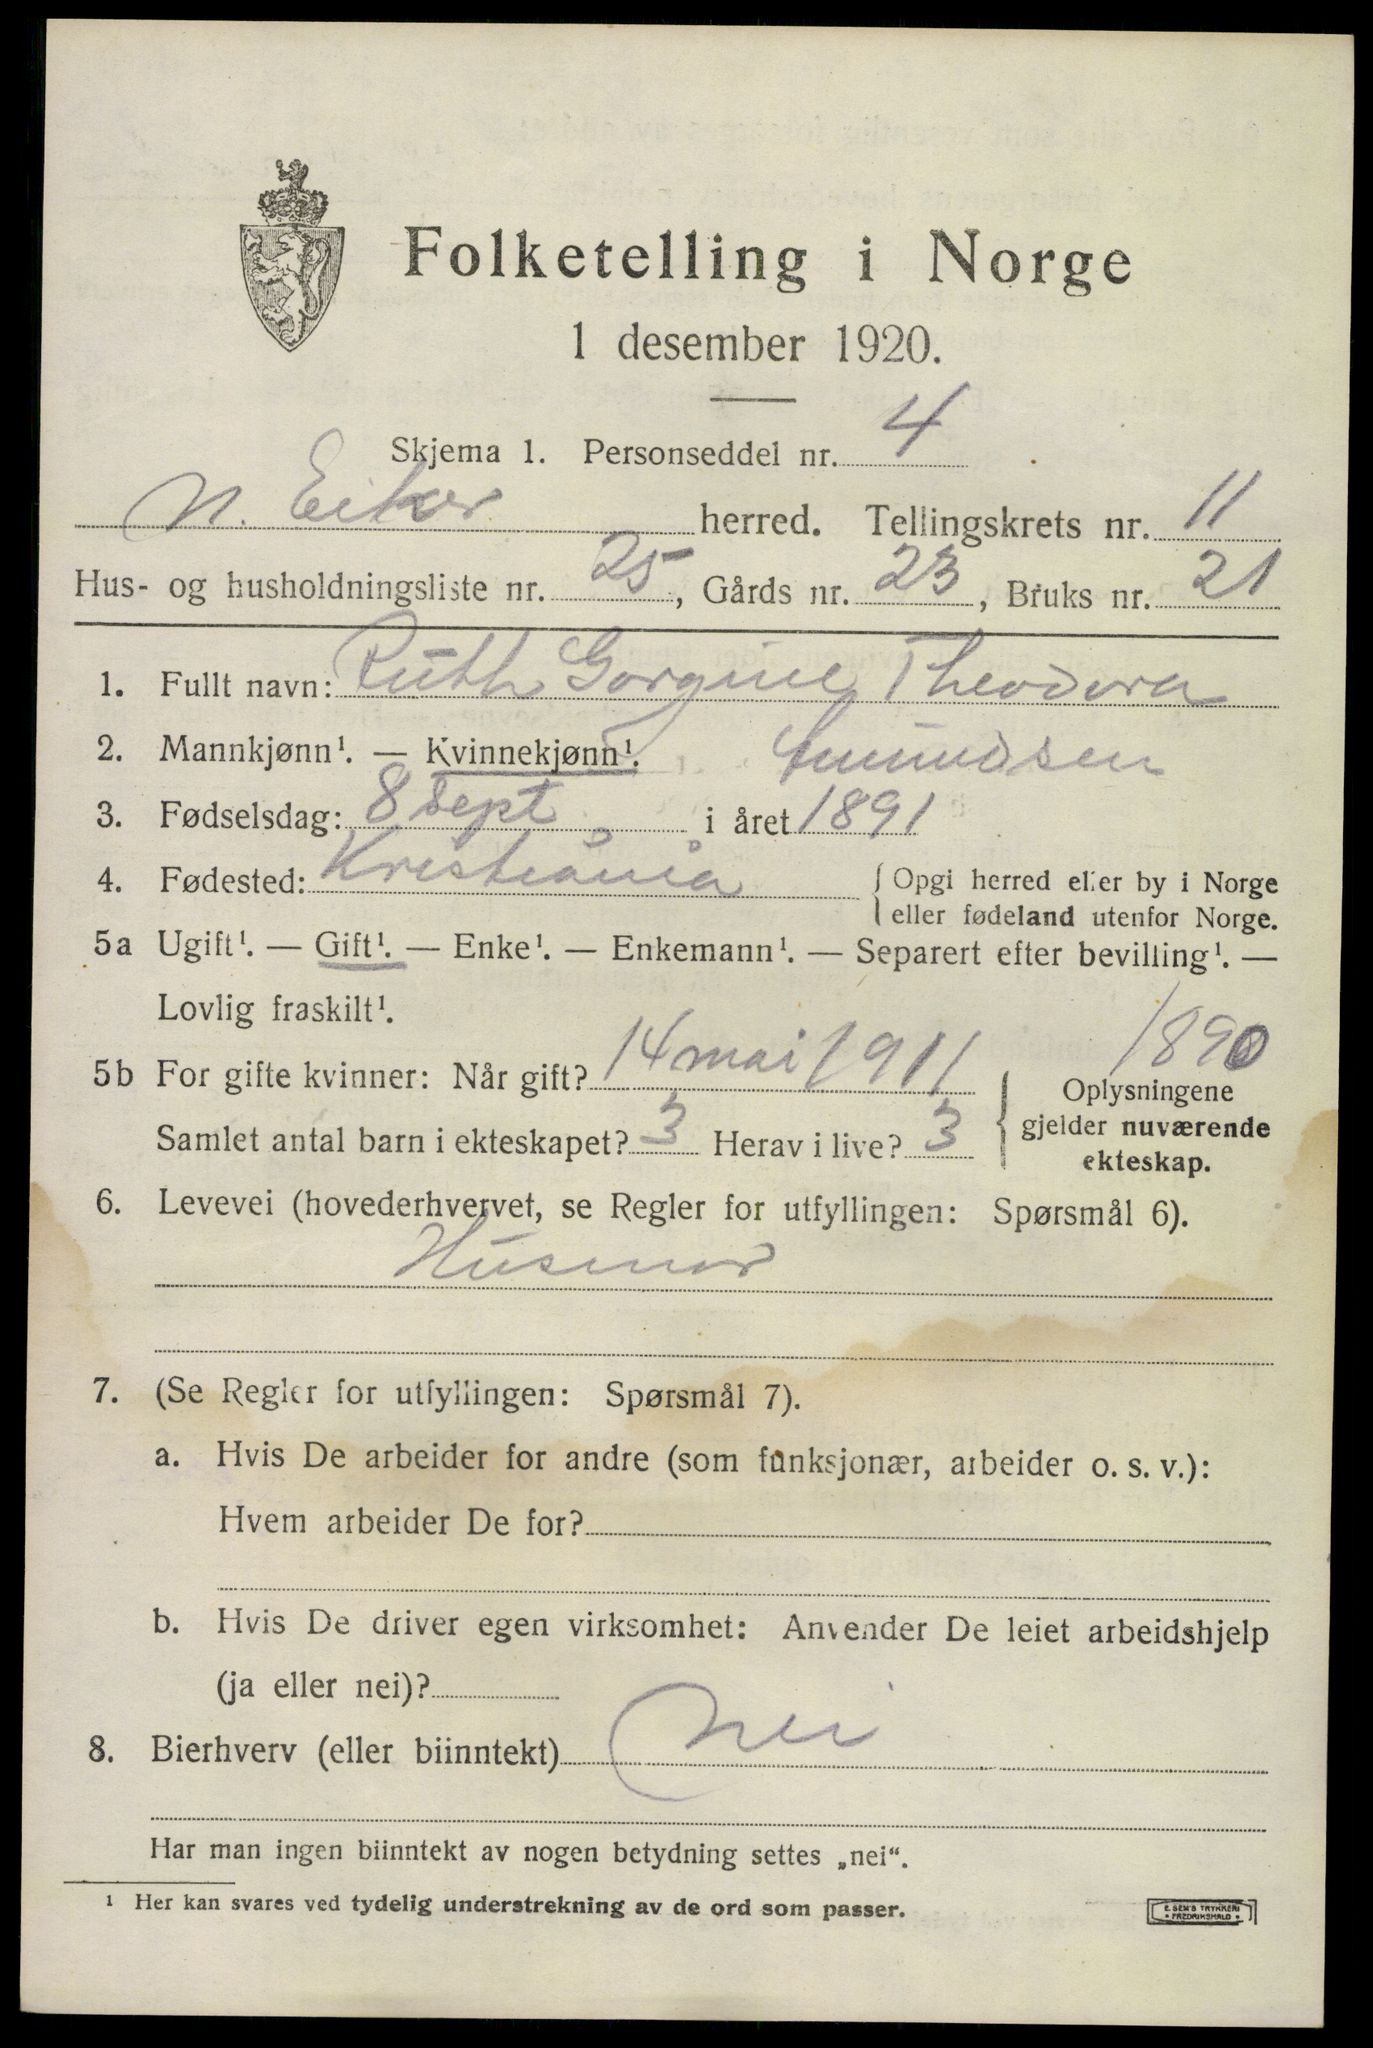 Folketelling i Norge
1 desember 1920.
Skjema 1. Personseddel nr. 4
N. Eiker herred. Tellingskrets nr. 11
Hus- og husholdningsliste nr. 25, Gårds nr. 23, Bruks nr. 21
1. Fullt navn: Ruth Gorgine Theodora
2. Mannkjønn¹. — Kvinnekjønn¹. Amundsen
3. Fødselsdag: 8 Sept i året 1891
4. Fødested: Kristiania { Opgi herred eller by i Norge
eller fødeland utenfor Norge.
5a Ugift¹. — Gift¹. — Enke¹. — Enkemann¹. — Separert efter bevilling¹. —
Lovlig fraskilt¹.
1890
5b For gifte kvinner: Når gift? 14 mai 1911
Samlet antal barn i ekteskapet? 3 Herav i live? 3
{ Oplysningene
gjelder nuværende
ekteskap.
6. Levevei (hovederhvervet, se Regler for utfyllingen: Spørsmål 6).
Husmor
7. (Se Regler for utfyllingen: Spørsmål 7).
a. Hvis De arbeider for andre (som funksjonær, arbeider o. s. v.):
Hvem arbeider De for?
b. Hvis De driver egen virksomhet: Anvender De leiet arbeidshjelp
(ja eller nei)?
8. Bierhverv (eller biinntekt) Nei
Har man ingen biinntekt av nogen betydning settes „nei“.
¹ Her kan svares ved tydelig understrekning av de ord som passer.
E. SEM'S TRYKKERI
• FREDRIKSHALD •